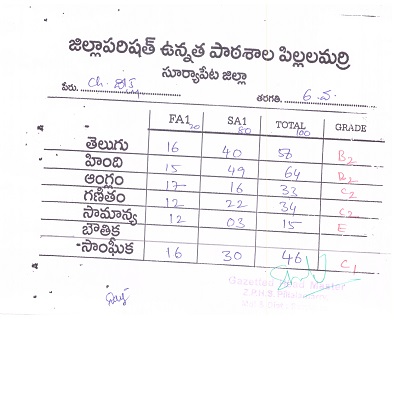 జిల్లాపరిషత్ ఉన్నత పాఠశాల పిల్లలమర్రి
సూర్యాపేట జిల్లా
పేరు. Ch. తరగతి. 6 వ.
FA1 20 SA1 80 TOTAL 100 GRADE
తెలుగు 16 40 56 B2
హింది 15 49 64 B2
ఆంగ్లం 17 16 33 C2
గణితం 12 22 34 C2
సామాన్య 12 03 15 E
భౌతిక
సాంఘీక 16 30 46 C1
Gazetted Head Master